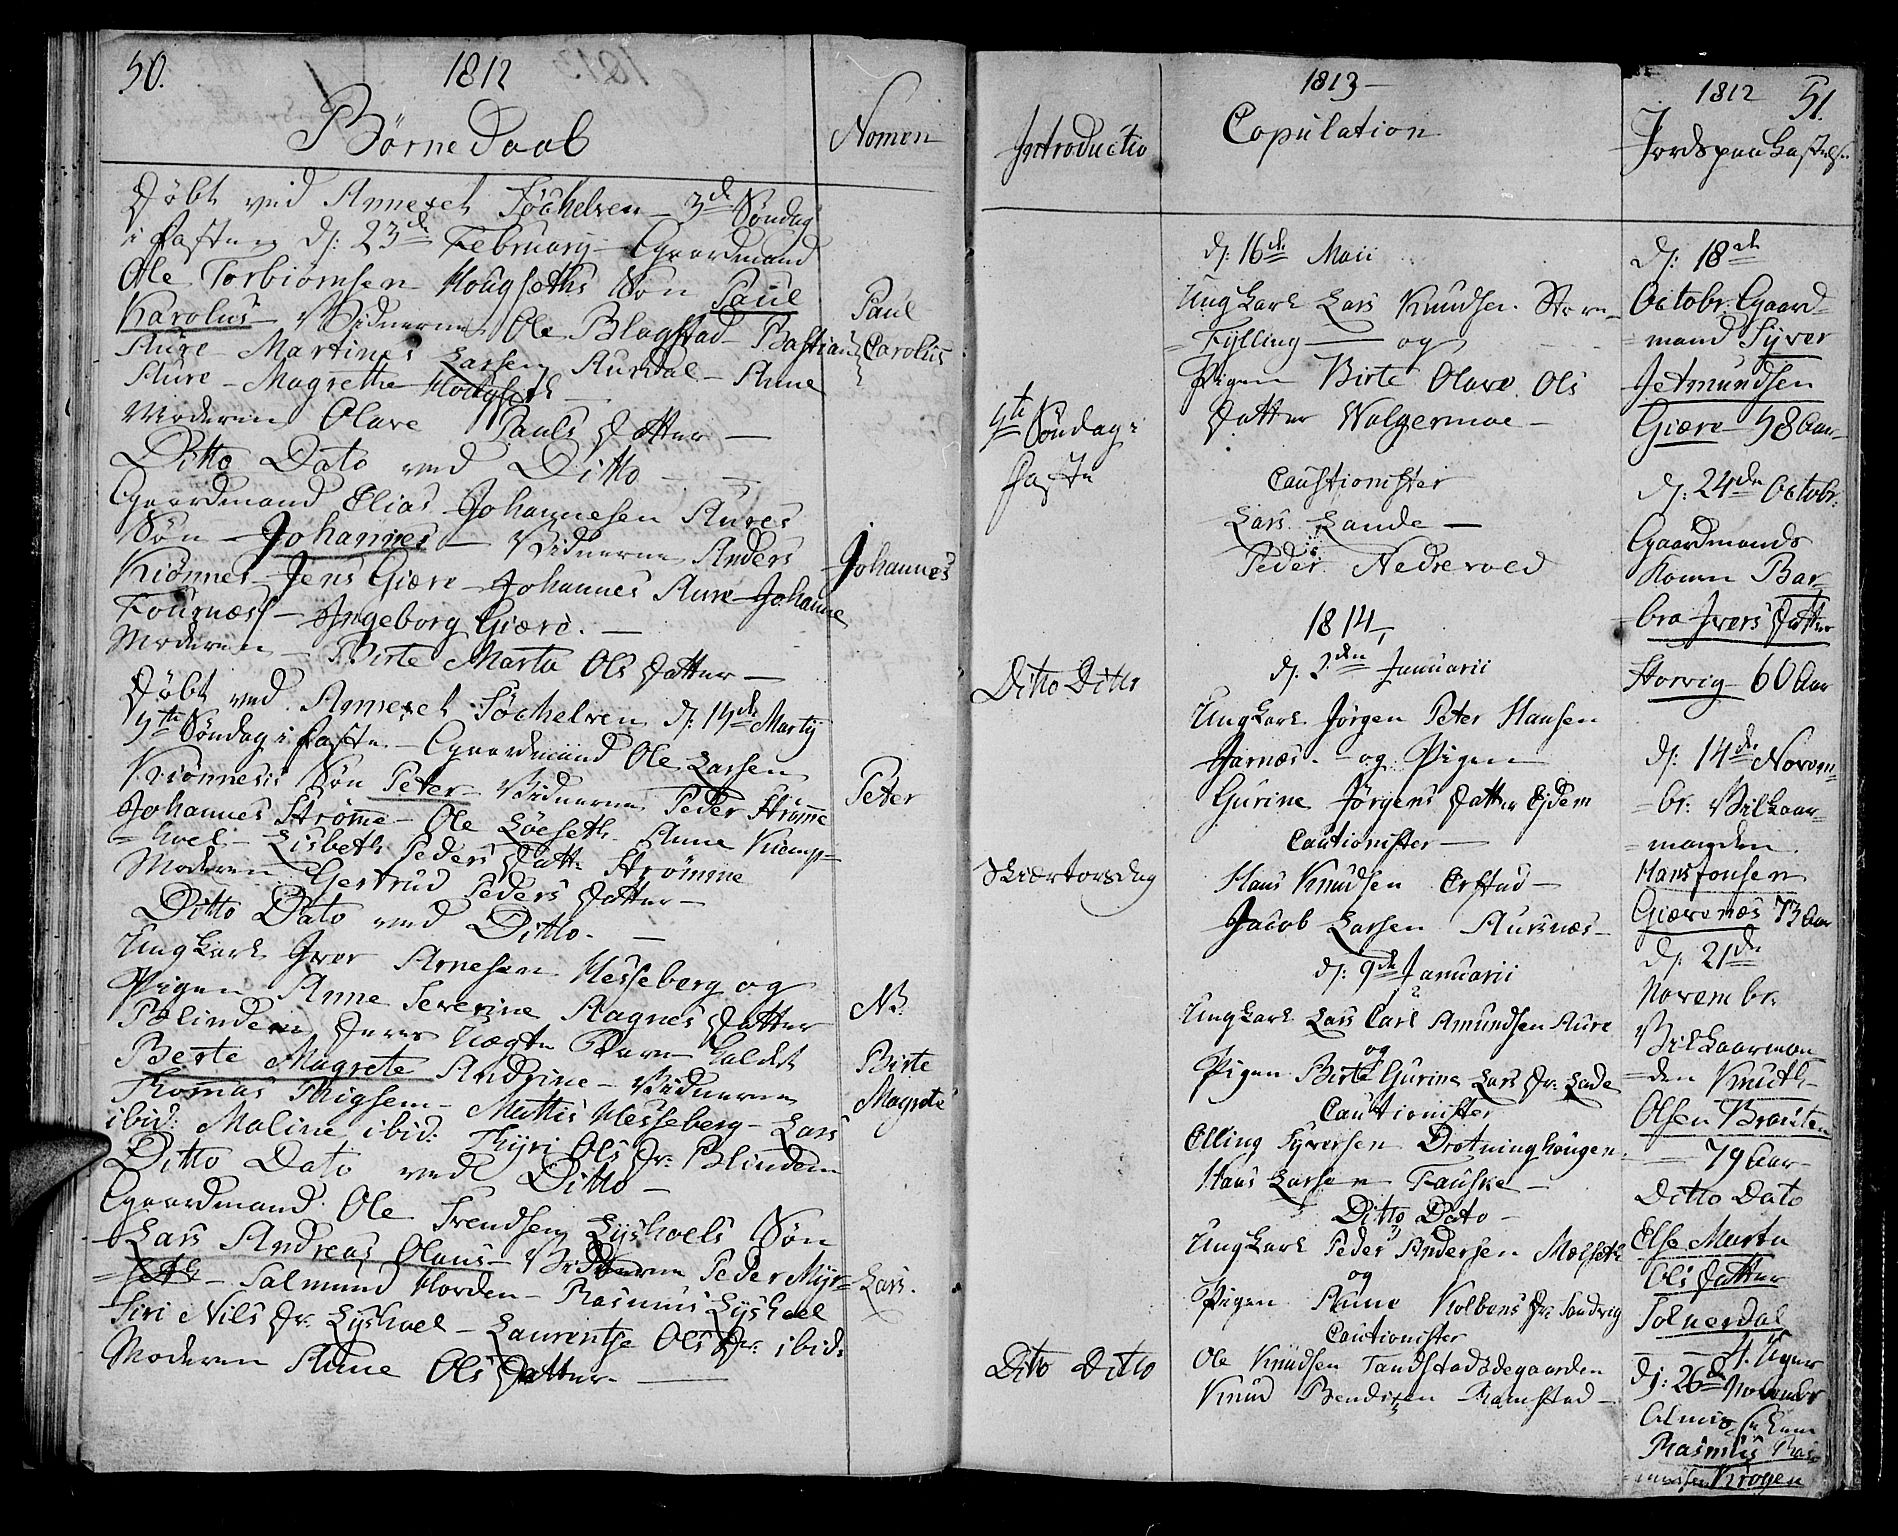 50.
1812
Børne Daab
Nomen
Døbt ved Annexet Søchelven 3de Søndag
i Fasten d: 23de Februarij Gaardmand
Ole Torbiørnsen Hougseths Søn Paul
Karolus Vidnerne Ole Blagstad Bastian
Aure Martines Larsen Aurdal Anne
Aure Magrethe Hougseth
Moderen Olave Pauls Datter
Paul
Carolus
Ditto Dato ved Ditto
Gaardmand Elias Johannesen Aures
Søn Johannes Vidnerne Anders
Kiønnes Jens Giære Johannes Aure Johanne
Fournæss Ingeborg Giære.
Moderen Birte Marta Ols Datter
Johannes
Døbt ved Annexet Søchelven d: 15de Martij
5te Søndag i Faste Gaardmand Ole Larsen
Kiønnesis Søn Peter Vidnerne Peder Strømme
Johannes Strømme Ole Løeseth Anne Kamp=
=hoel Lisbeth Peders Datt. Strømme
Moderen Gertrud Peders Datter
Peter
Ditto Dato ved Ditto.
Ung Karl Iver Arnesen Hesseberg og
Pigen Anne Severine Ragnes Datter
Blindem deres Uægte Barn kaldet
Berte Magrete Andrine Vidnerne
Thomas Thigsem Mattis Hesseberg Lars
ibid: Maline ibid: Thyri Ols Dr: Blindem
NB.
Birte
Magrete
Ditto Dato ved Ditto
Gaardmand Ole Trendsen Lyshoels Søn
Lars Andreas Olaus Vidnerne Peder Myr=
=seth Salmund Horden Rasmus Lyshoel
Siri Nils Dr. Lyshoel Laurentse Ols Dr: ibid:
Moderen Anne Ols Datter
Lars.
Introductio
5te Søndag i
Faste
Ditto Ditto
Skiærtorsdag
Ditto Ditto
1813
Copulation
d: 16de Maii
Ung Karl Lars Knudsen Store
=Fylling og
Pigen Birte Olave Ols
Datter Walgermoe
Caustionister
Lars Lande
Peder Nedrevold
1814,
d. 2den Januarii
Ung Karl Jørgen Peter Hansen
Garnæs og Pigen
Gurine Jørgens Datter Eidem
Cautionister
Hans Knudsen Erstad
Jacob Larsen Aursnæs
d: 9de Januarii
Ung Karl Lars Carl Amundsen Aure
og
Pigen Birte Gurine Lars Dr. Lade
Cautionister
Elling Syversen Drotninghougen
Hans Larsen Fauske
Ditto Dato
Ung Karl Peder Andersen Mælseth
og
Pigen Anne Kolbens Dr. Sandvig
Cautionister
Ole Knudsen Tandstadødegaarden
Knud Bendixen Ramstad
1812 51.
Jordspaa Kastelse
d: 18de
Octobr: Gaard
=mand Syver
Jetmundsen
Giære 58 Aar
d: 24de Octobr:
Gaardmands
Konen Bar
=bra Ivers Datter
Storvig 60 Aar
d: 14de Novem
=br: Vilkaar
=manden
Hans Jonsen
Giærenæs 73 Aar
d: 21de
Novembr:
Vilkaarman
=den Knuth
Olsen Brauten
79 Aar
Ditto Dato
Else Marta
Ols Datter
Solnerdal
4. Uger
d: 26de November
Rasmus Ras
=mussen Krogen